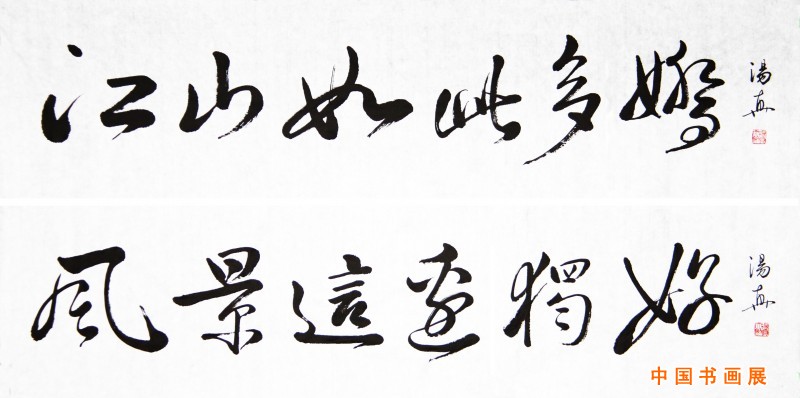 江山如此多嬌
湯
風景這邊獨好
湯
中国书画展